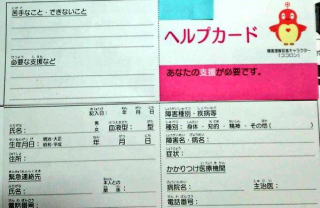 苦手なこと・できないこと
必要な支援など
ヘルプカード
障害理解促進キャラクター
(ココロン)
あなたの支援が必要です。
記入日: 年 月 日
氏名: 男 女 血液型: 型
生年月日 明治・大正 昭和・平成 年 月 日
住所:
緊急連絡先
氏名: 本人との
電話番号:
障害種別・疾病等
種別:身体・知的・精神・その他( )
障害名・病名:
症状:
かかりつけ医療機関
病院名: 主治医:
電話番号: